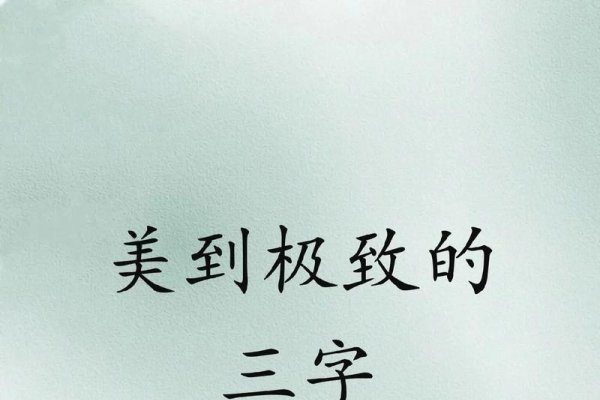 美到极致的
三字